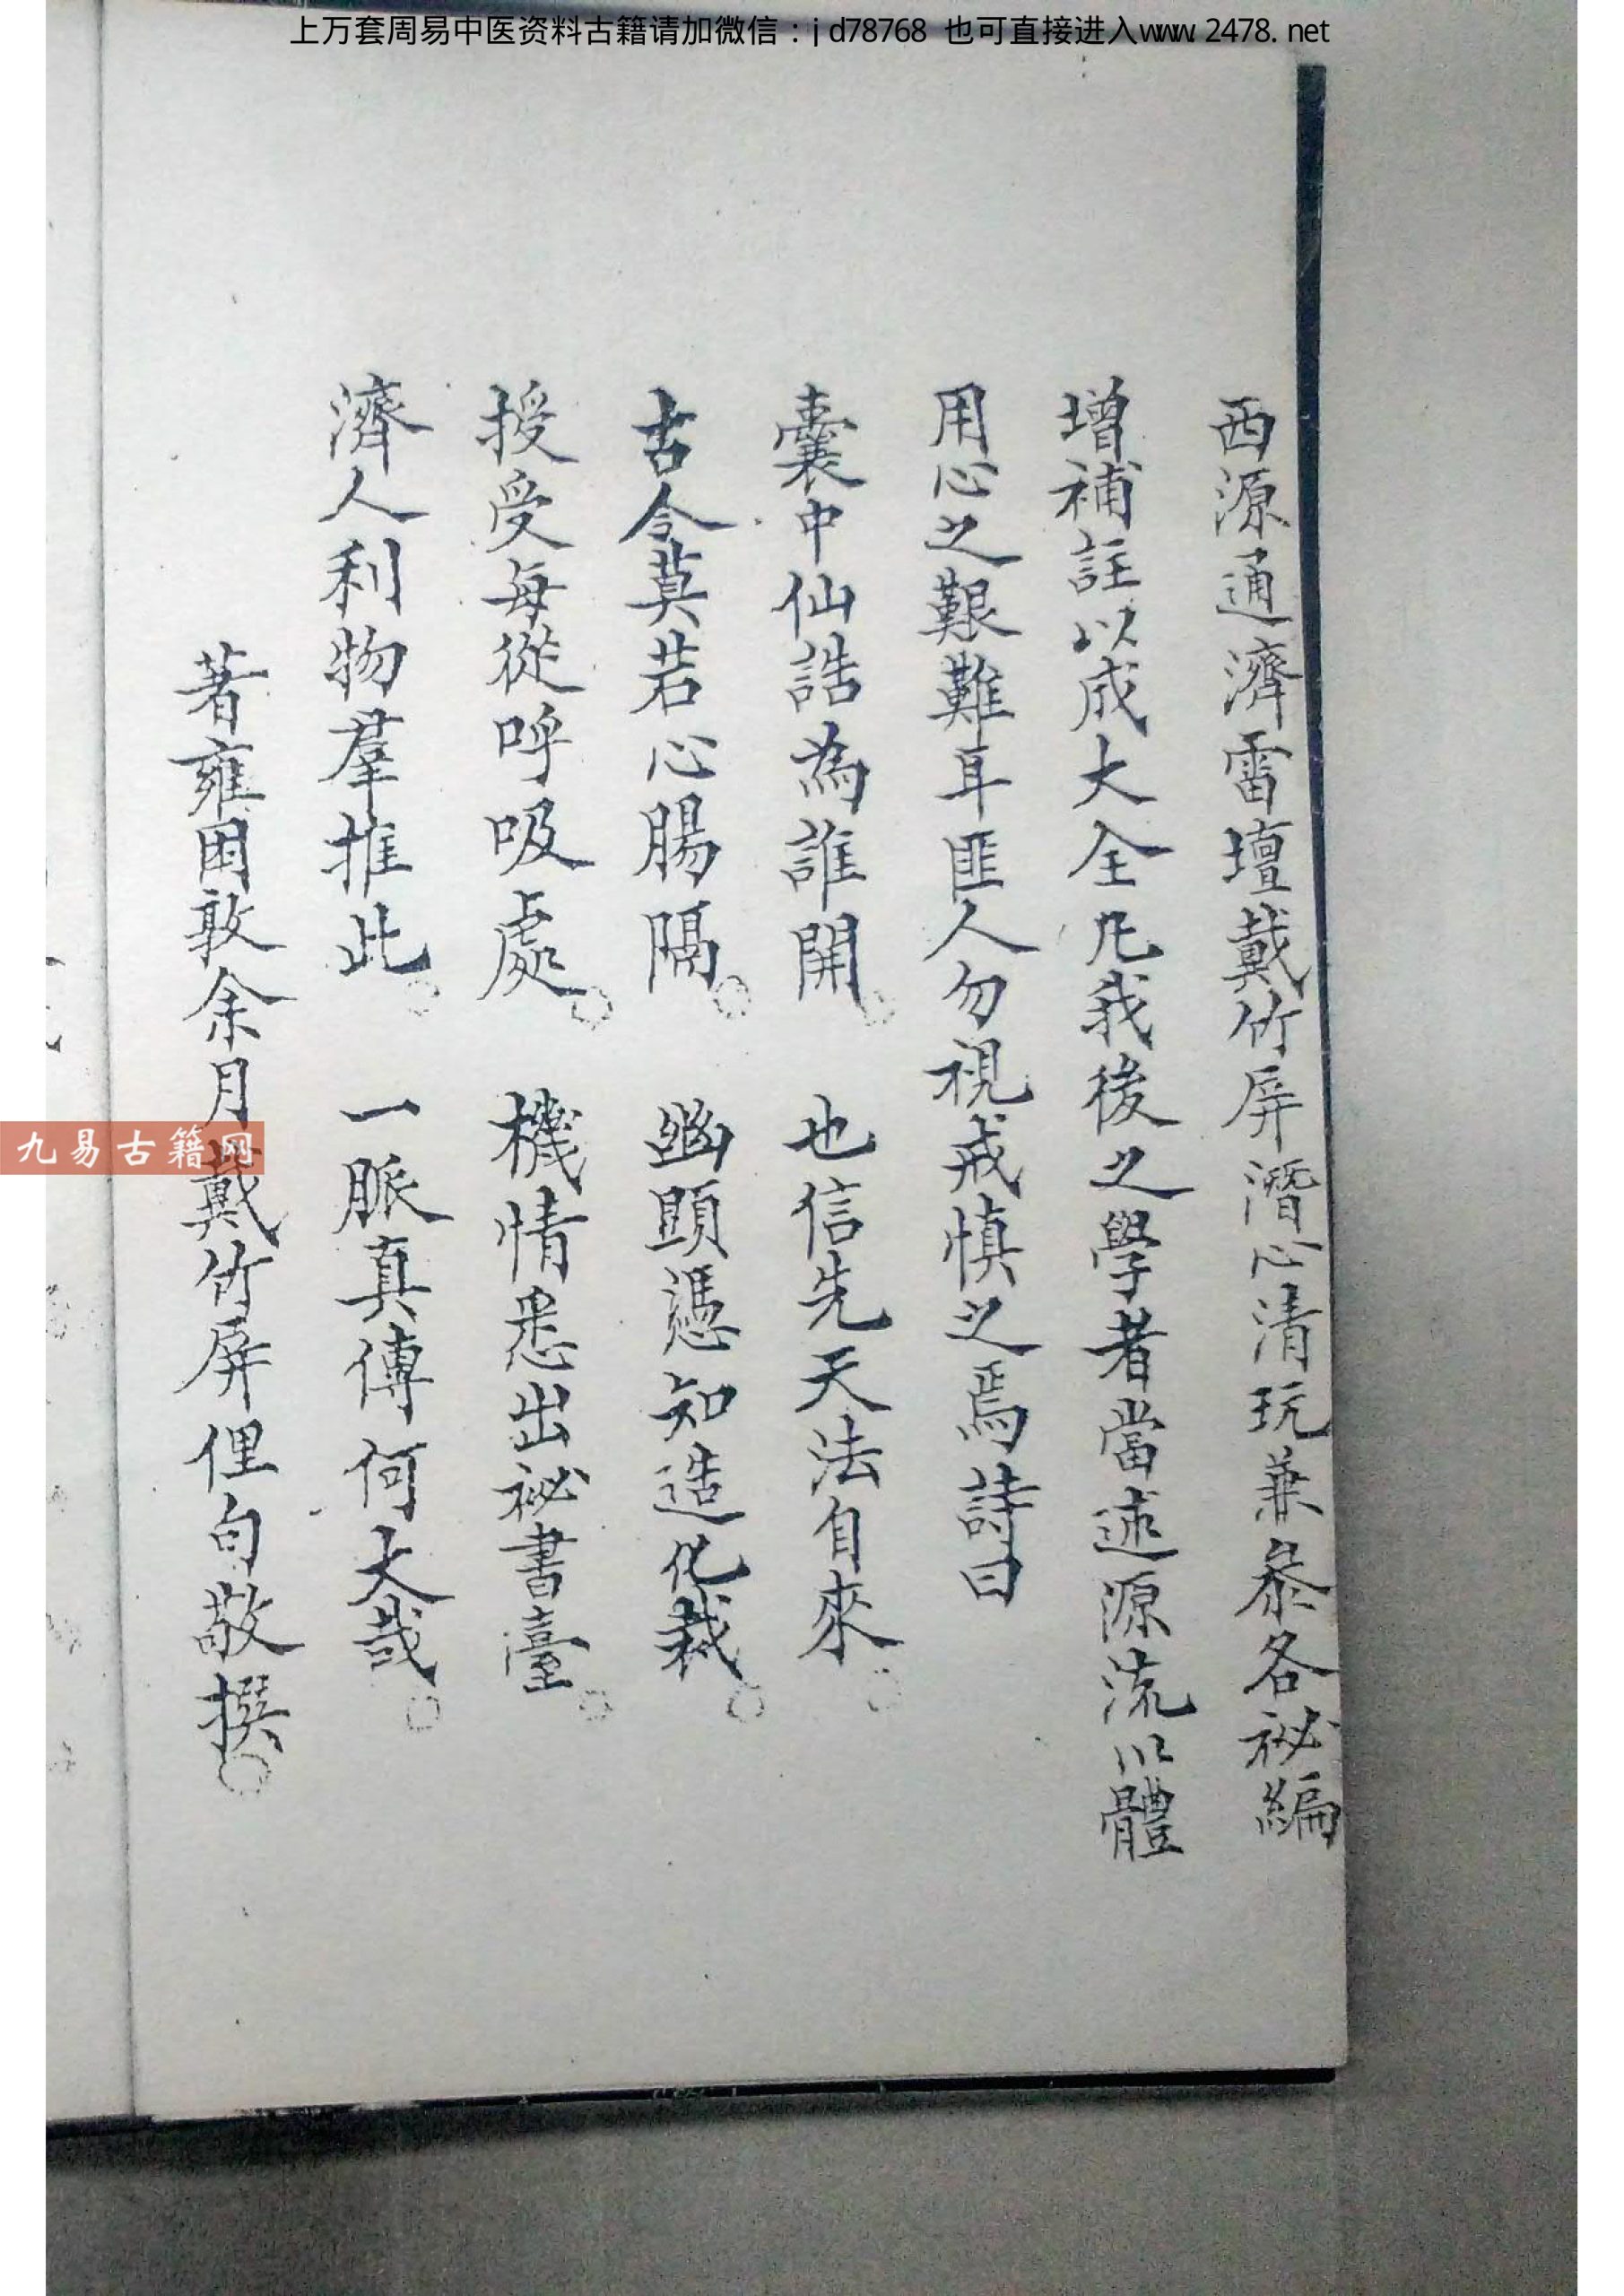 上万套周易中医资料古籍请加微信：jd78768 也可直接进入www.2478.net
西源通濟雷壇戴竹屏潛心清玩兼叅各祕編
增補註以成大全凡我後之學者當述源流以體
用心之艱難耳匪人勿視戒慎之焉詩曰
囊中仙誥為誰開 也信先天法自來
古今莫若心腸隔 幽顕憑知造化裁
授受每從呼吸處 機情悉出祕書臺
濟人利物羣推此 一脈真傳何大哉
著雍困敦余月戴竹屏俚句敬撰
九易古籍网